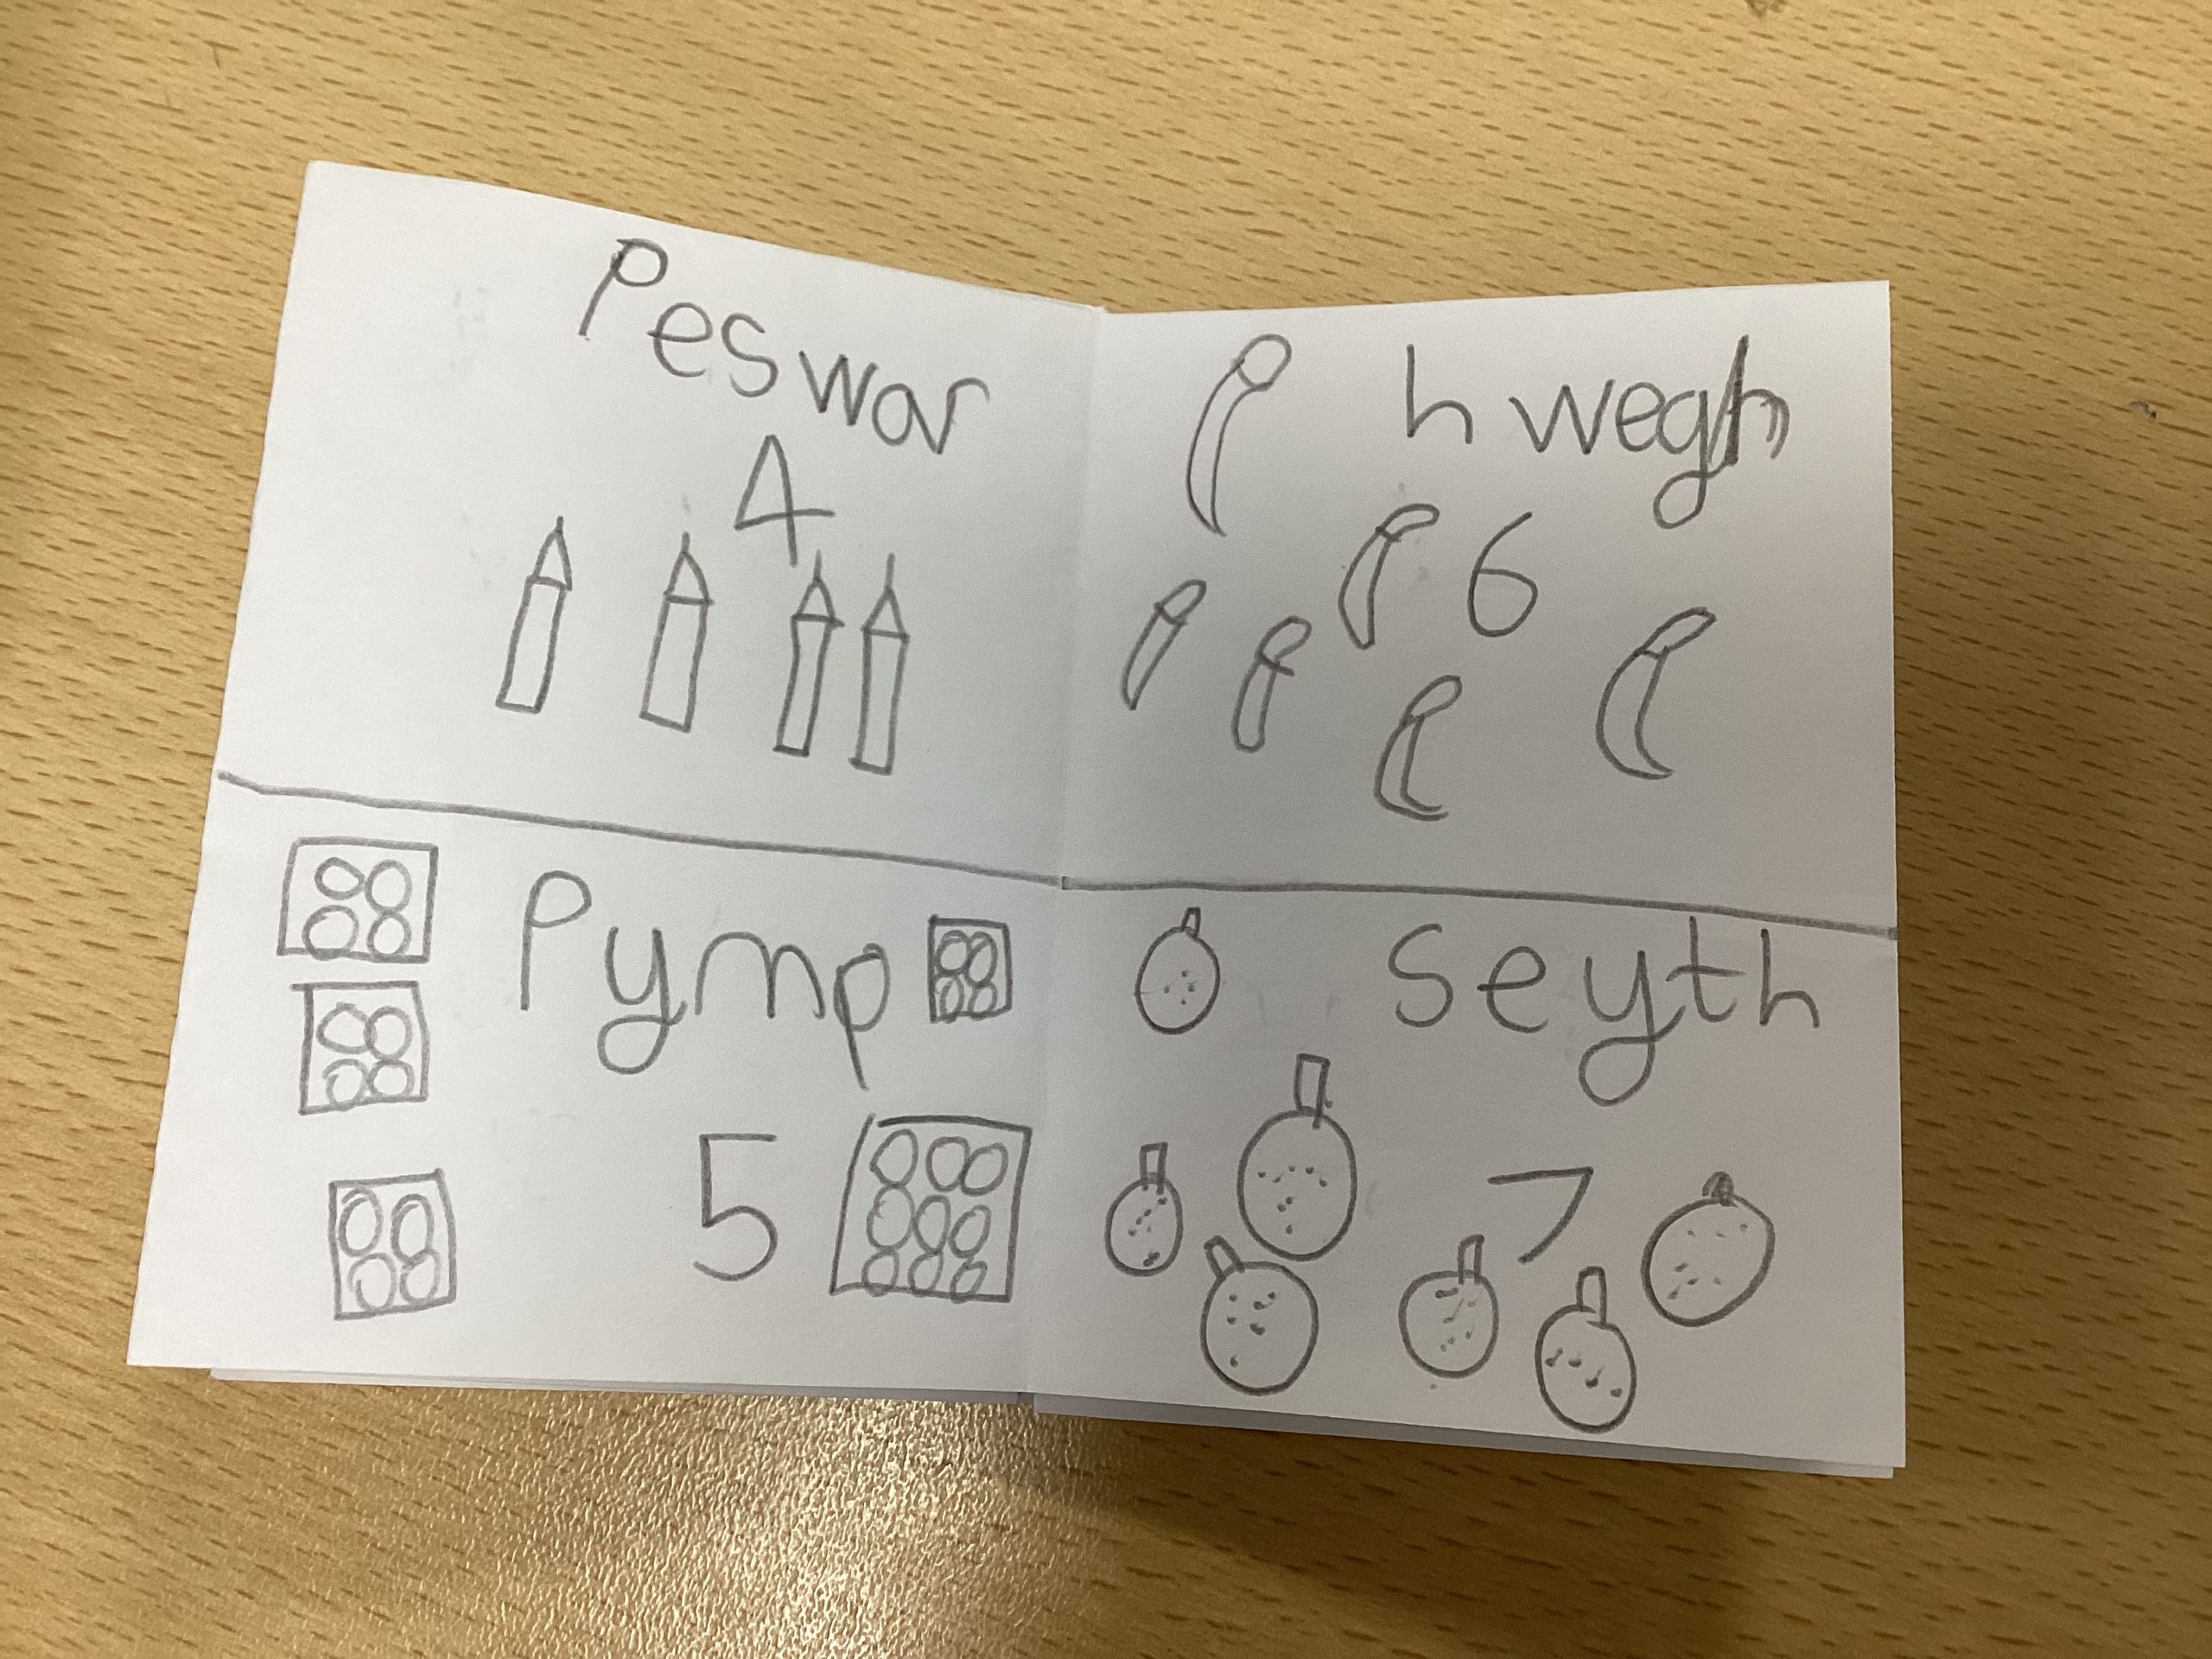 Peswar
4
Pymp
5
hwegh
6
seyth
7